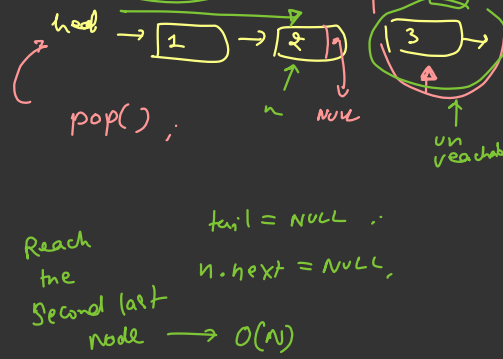 head
1
2
3
n
NULL
pop() ;
un
tail = NULL ;
n.next = NULL.
Reach
the
second last
node
O(N)